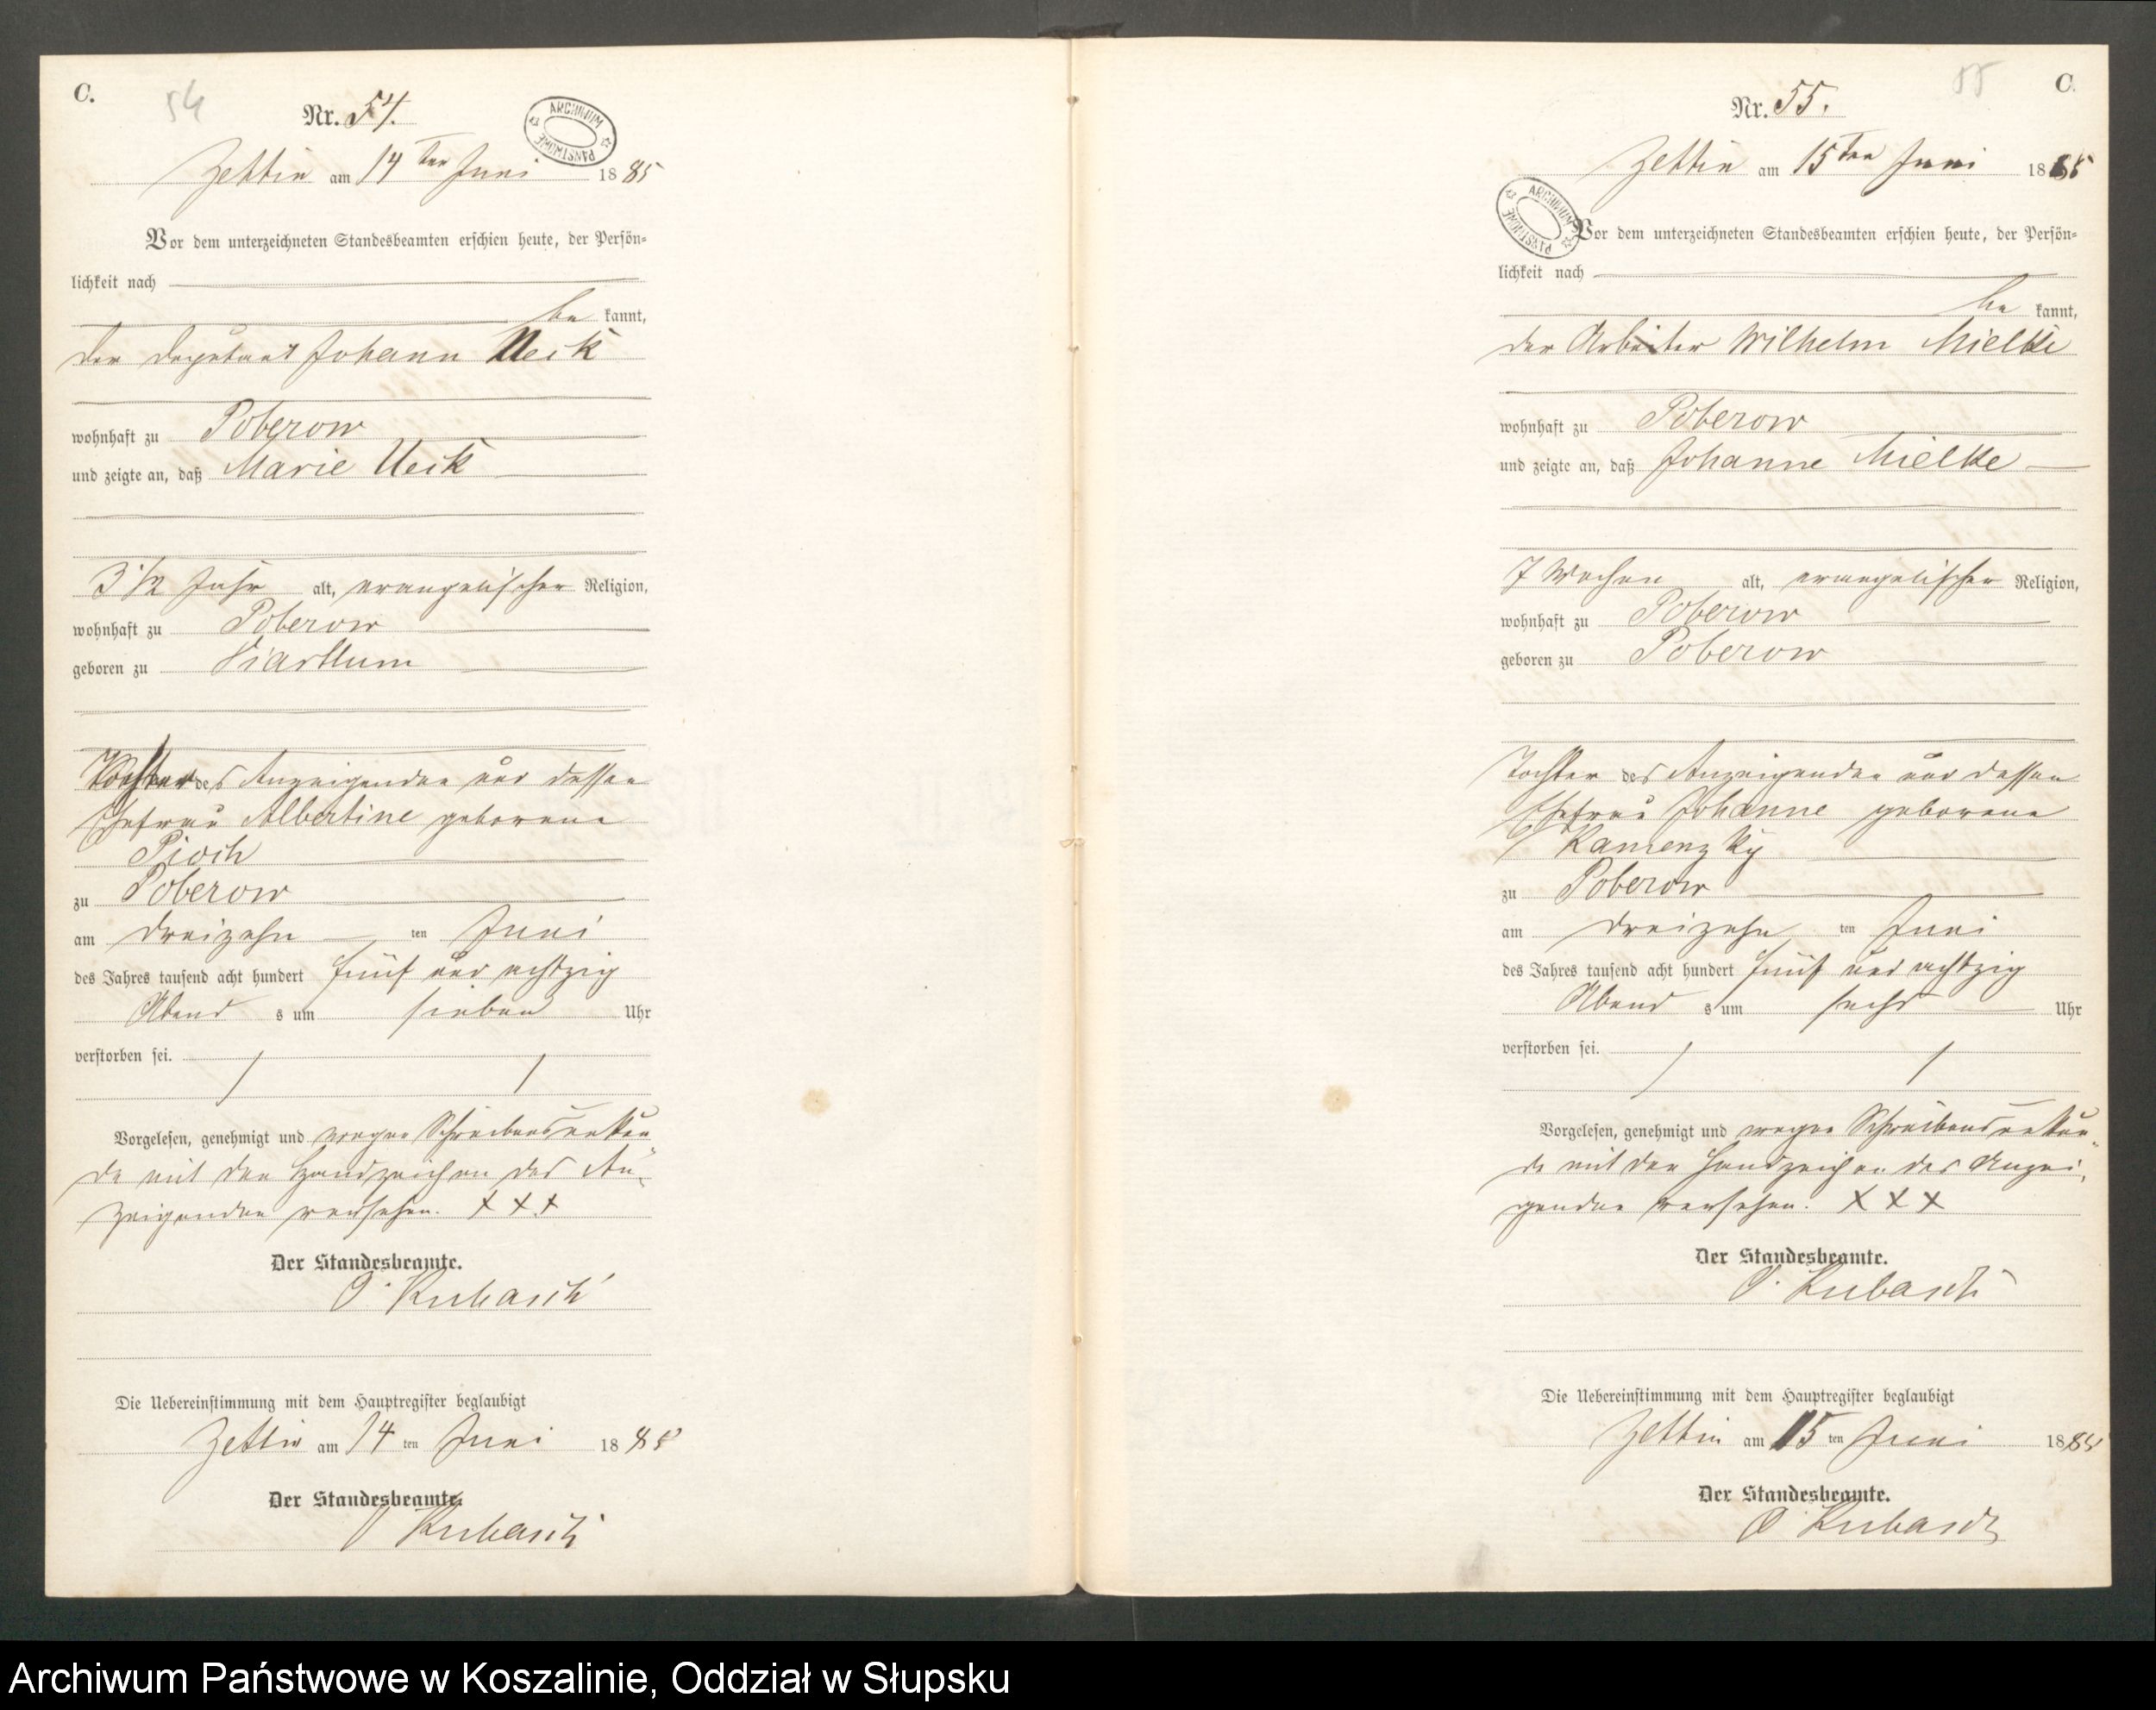 C.
54
Nr. 54.
ARCHIWUM PAŃSTWOWE
Zettin am 14ten Juni 1885
Vor dem unterzeichneten Standesbeamten erschien heute, der Persön=
lichkeit nach
be kannt,
der Deputant Johann Ueik
wohnhaft zu Poberow
und zeigte an, daß Marie Ueik
3 1/2 Jahr alt, evangelischer Religion,
wohnhaft zu Poberow
geboren zu Viartlum
Tochter des Anzeigenden und dessen
Ehefrau Albertine geborene
Pioch
zu Poberow
am dreizehn ten Juni
des Jahres tausend acht hundert fünf und achtzig
Abend s um sieben Uhr
verstorben sei.
Vorgelesen, genehmigt und wegen Schreibensunkun
de mit den Handzeichen des An=
zeigenden versehen. XXX
Der Standesbeamte.
O. Kubasch
Die Uebereinstimmung mit dem Hauptregister beglaubigt
Zettin am 14 ten Juni 1885
Der Standesbeamte.
O Kubasch
55
C.
Nr. 55.
Zettin am 15ten Juni 1885
ARCHIWUM PAŃSTWOWE
Vor dem unterzeichneten Standesbeamten erschien heute, der Persön=
lichkeit nach
be kannt,
der Arbeiter Wilhelm Mielke
wohnhaft zu Poberow
und zeigte an, daß Johanne Mielke
7 Wochen alt, evangelischer Religion,
wohnhaft zu Poberow
geboren zu Poberow
Tochter des Anzeigenden und dessen
Ehefrau Johanne geborene
Kamenzky
zu Poberow
am dreizehn ten Juni
des Jahres tausend acht hundert fünf und achtzig
Abend s um sechs Uhr
verstorben sei.
Vorgelesen, genehmigt und wegen Schreibensunkun=
de mit den Handzeichen des Anzei=
genden versehen. XXX
Der Standesbeamte.
O. Kubasch
Die Uebereinstimmung mit dem Hauptregister beglaubigt
Zettin am 15 ten Juni 1885
Der Standesbeamte.
O Kubasch
Archiwum Państwowe w Koszalinie, Oddział w Słupsku